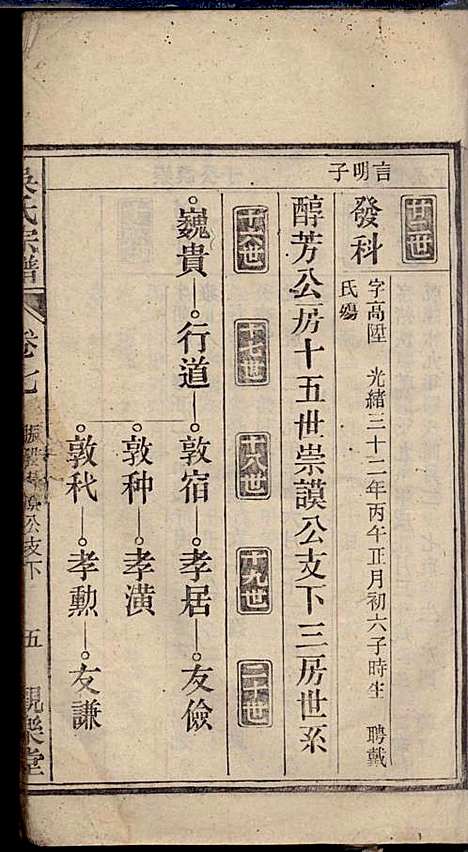 言明子
廿二世
發科
字高陞 光緒三十二年丙午正月初六子時生 聘戴
氏殤
醇芳公房十五世崇謨公支下三房世系
十六世 十七世 十八世 十九世 二十世
巍貴 行道 敦宿 孝居 友儉
敦种 孝潢
敦秋 孝勳 友謙
吳氏宗譜 卷七 公支下 五 觀樂堂